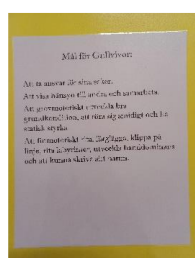 Mål för Gullvivan:
Att ta ansvar för sina saker.
Att visa hänsyn till andra, och samarbeta.
Att grovmotoriskt utveckla bra
grundkondition, att röra sig smidigt och ha
statisk styrka.
Att, finmotoriskt rita, färglägga, klippa på
linje, rita labyrinter, utveckla
och att kunna skriva sitt namn.